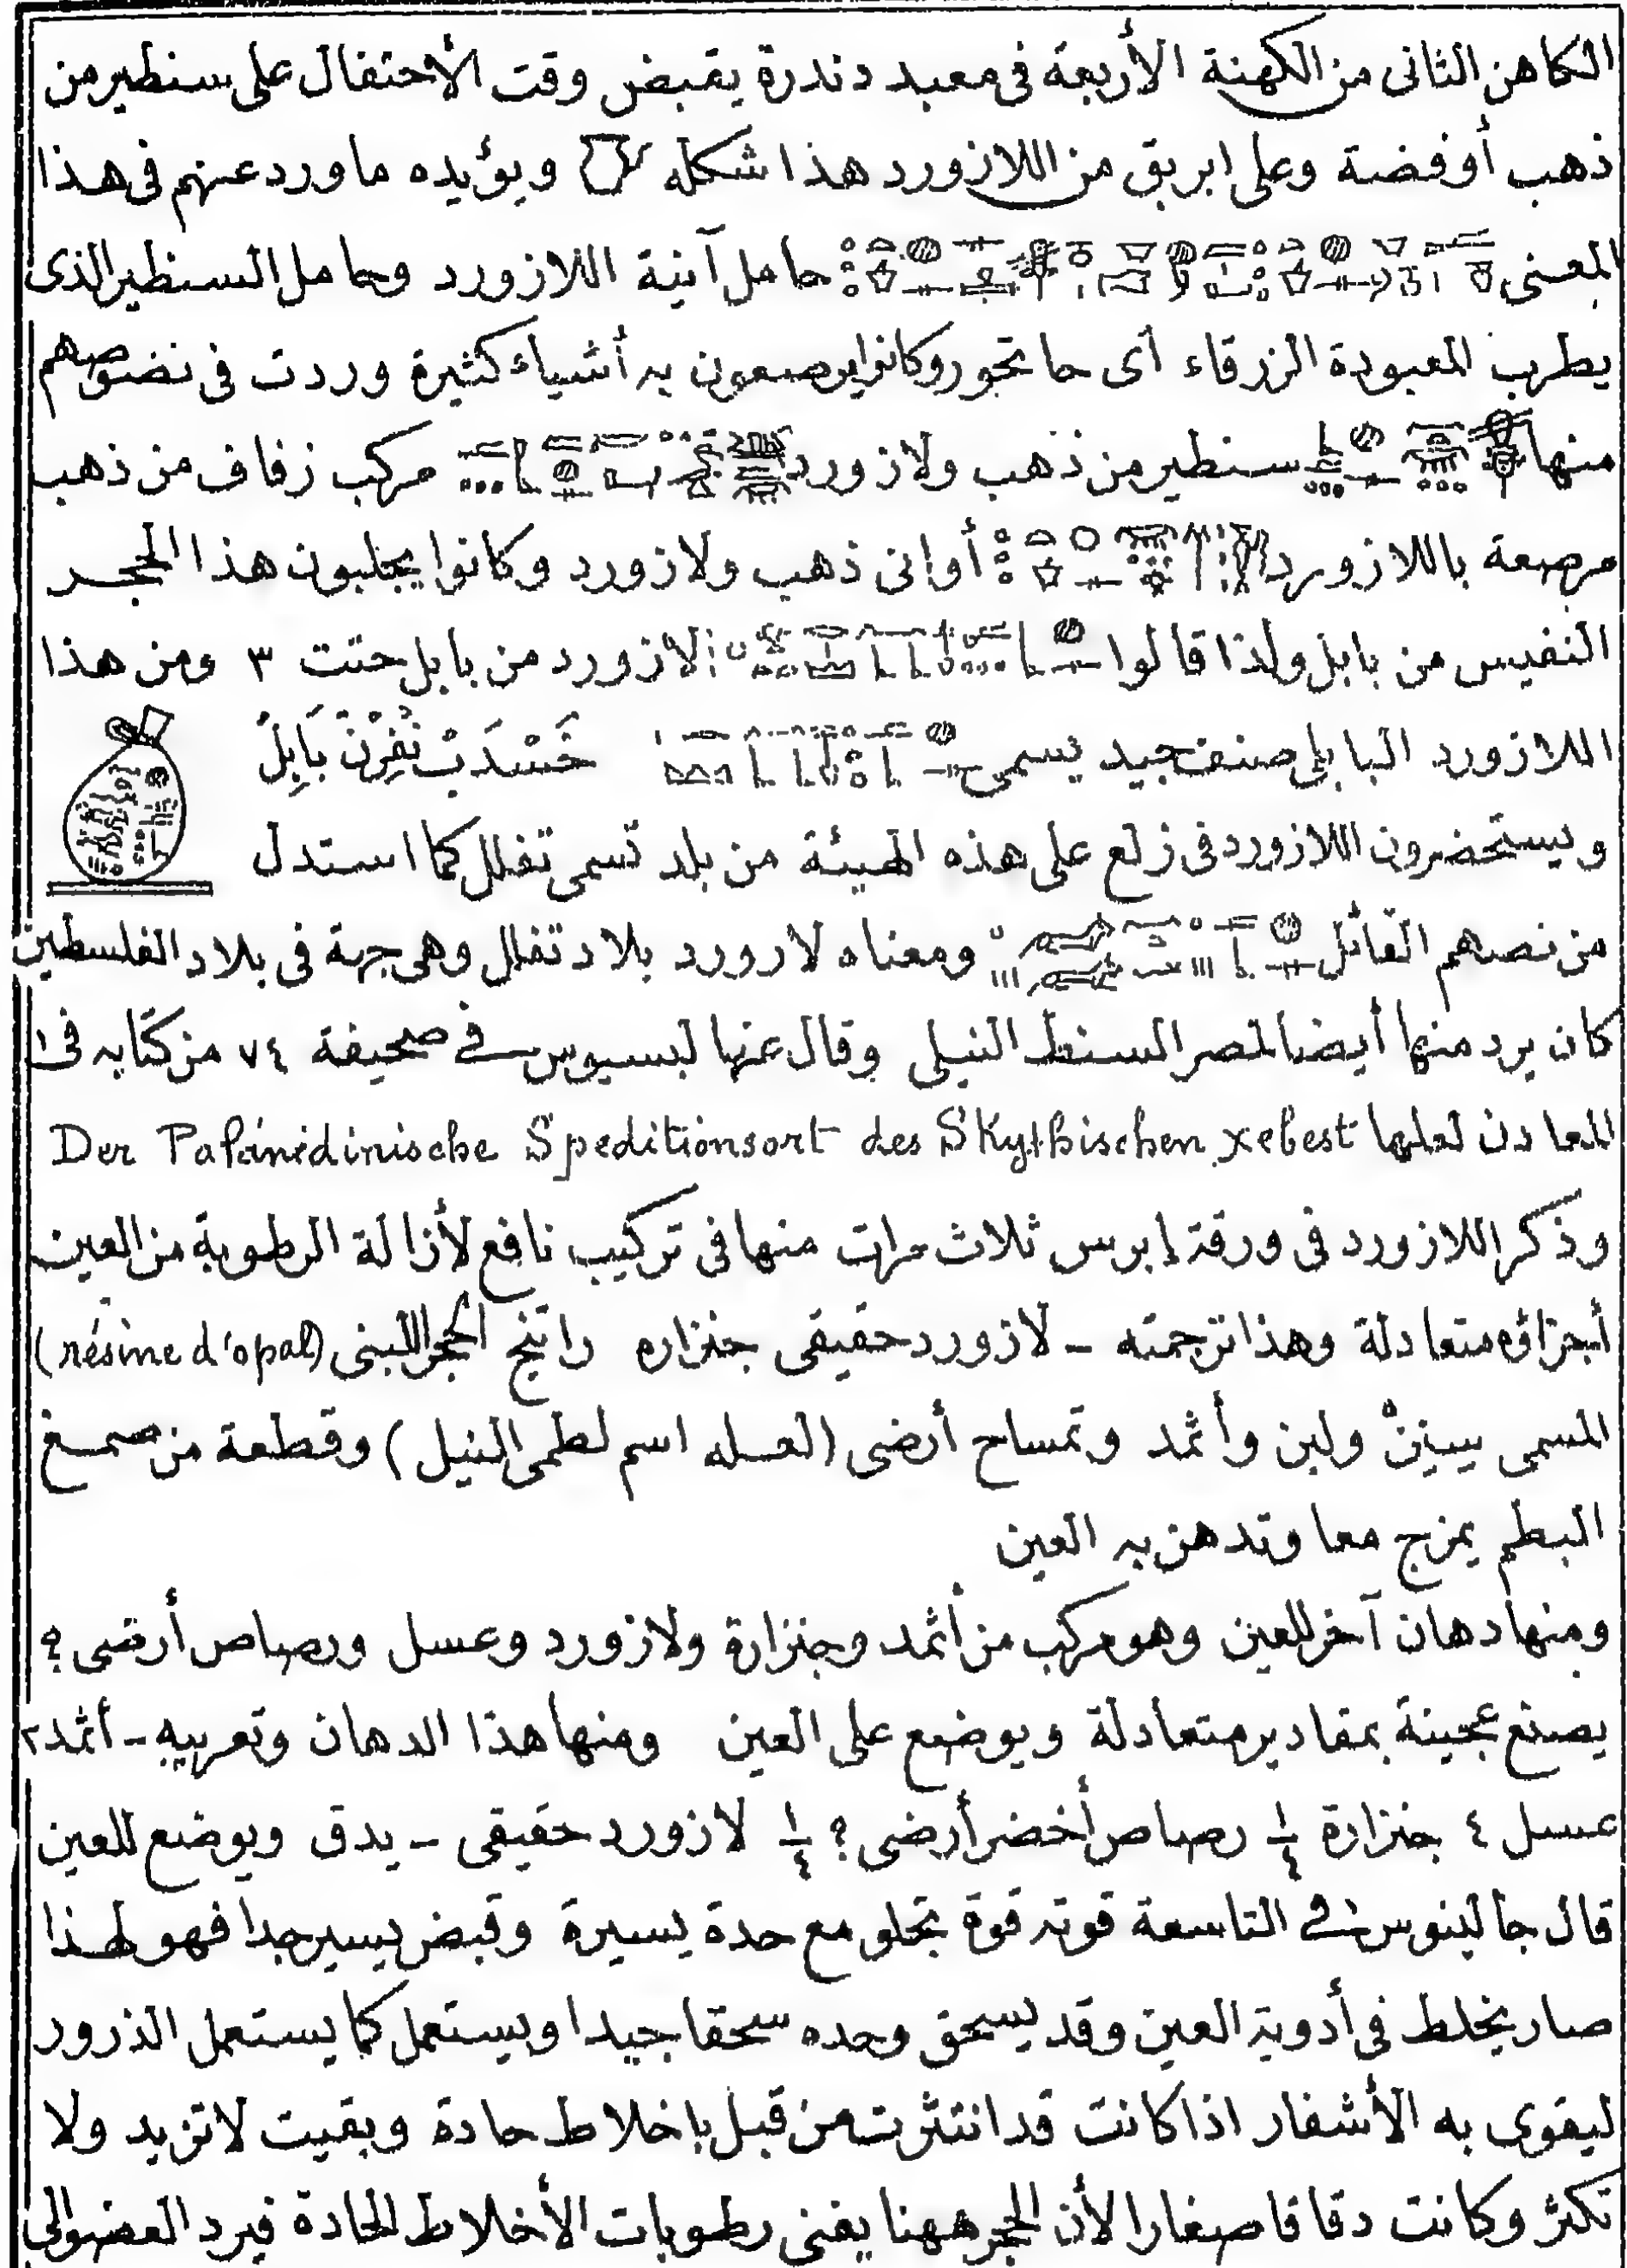 الكاهن الثانى من الكهنة الأربعة فى معبد دندرة يقبض وقت الأحتفال على سنطير من
ذهب أو فضة وعلى ابريق من اللازورد هذا شكله ويؤيده ما ورد عنهم فى هذا
المعنى حامل آنية اللازورد وحامل السنطير الذى
يطرب المعبودة الزرقاء أى حاتحور وكانوا يرصعون به أشياء كثيرة وردت فى نصوصهم
منها سنطير من ذهب ولازورد مركب زفاف من ذهب
مرصعة باللازورد أوانى ذهب ولازورد وكانوا يجلبون هذا الحجر
النفيس من بابل ولذا قالوا لازورد من بابل حتت ٣ ومن هذا
اللازورد البابلى صنف جيد يسمى خَسْدَبْ نُفِرْنَ بَابِلْ
ويستحضرون اللازورد فى زلع على هذه الهيئة من بلد تسمى تفلل كما استدل
من نصهم القائل ومعناه لازورد بلاد تفلل وهى جهة فى بلاد الفلسطين
كان يرد منها أيضا لمصر السنط النيلى وقال عنها لبسيوس فى صحيفة ٧٤ من كتابه فى
المعادن لعلها Der Palänidinische Speditionsort des Skythischen xebest
وذكر اللازورد فى ورقة إبرس ثلاث مرات منها فى تركيب نافع لأزالة الرطوبة من العين
أجزاؤه متعادلة وهذا ترجمته - لازورد حقيقى جنزاره راتنج الحجر اللبنى (résine d'opal)
المسمى ولبن وأثمد وتمساح أرضى (لعله اسم لطمى النيل) وقطعة من صمغ
البطم يمزج معا وتدهن به العين
ومنها دهان آخر للعين وهو مركب من أثمد وجنزارة ولازورد وعسل ورصاص أرضى ؟
يصنع عجينة بمقادير متعادلة ويوضع على العين ومنها هذا الدهان وتعريبه - أثمد ٢
عسل ٤ جنزارة ١/٤ رصاص أخضر أرضى ؟ ١/٤ لازورد حقيقى - يدق ويوضع للعين
قال جالينوس فى التاسعة قوته قوة تجلو مع حدة يسيرة وقبض يسير جدا فهو لهذا
صار يخلط فى أدوية العين وقد يسحق وحده سحقا جيدا ويستعمل كما يستعمل الذرور
ليقوى به الأشفار اذا كانت قد انتثرت من قبل باخلاط حادة وبقيت لا تزيد ولا
تكثر وكانت دقاقا صغارا لأن الحجر ههنا يفنى رطوبات الأخلاط الحادة فيرد العضو الى